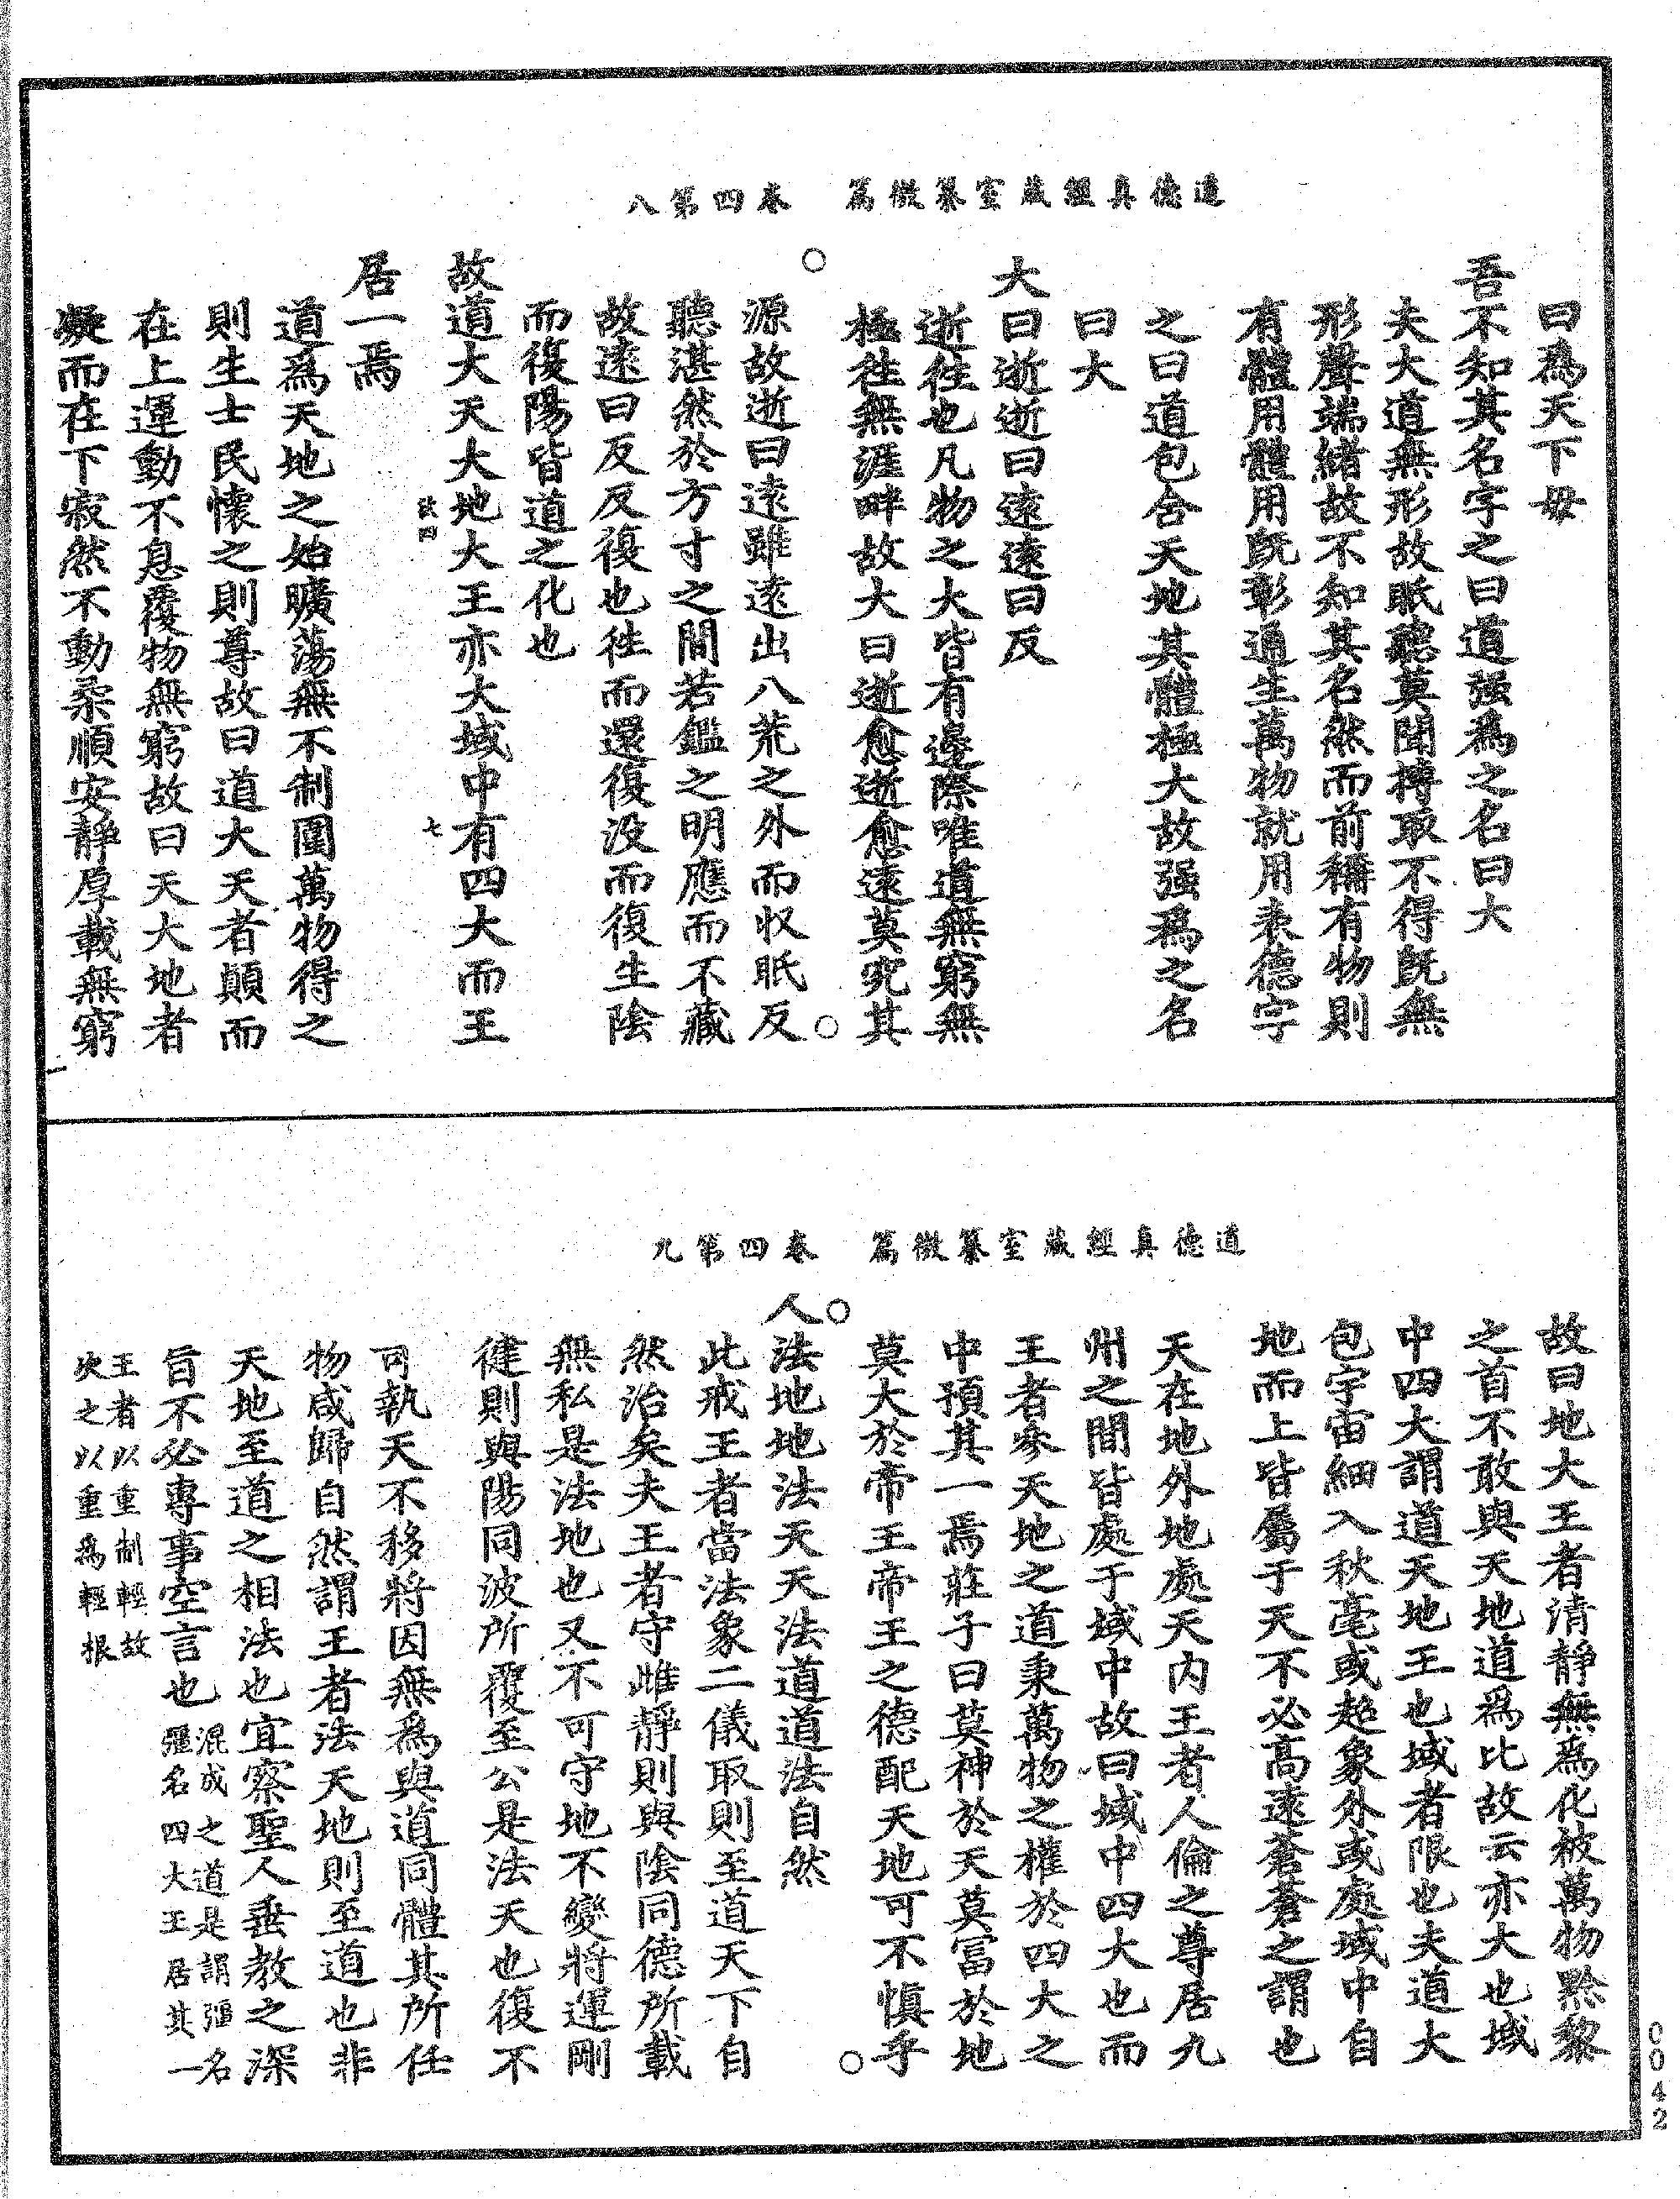 道德真經藏室纂微篇　卷四第八
曰為天下母
吾不知其名字之曰道强為之名曰大
夫大道無形故眂聽莫聞摶取不得旣無
形聲端緒故不知其名然而前稱有物則
有體用體用旣彰通生萬物就用表德字
之曰道包含天地其體極大故强為之名
曰大
大曰逝逝曰遠遠曰反
逝往也凡物之大皆有邊際唯道無窮無
極往無涯畔故大曰逝愈逝愈遠莫究其
源故逝曰遠雖遠出八荒之外而収眂反
聽湛然於方寸之間若鑑之明應而不藏
故遠曰反反復也往而還復没而復生陰
而復陽皆道之化也
故道大天大地大王亦大域中有四大而王
七
居一焉
道為天地之始曠蕩無不制圍萬物得之
則生士民懷之則尊故曰道大天者顚而
在上運動不息覆物無窮故曰天大地者
凝而在下寂然不動柔順安靜厚載無窮
道德真經藏室纂微篇　卷四第九
故曰地大王者清靜無為化被萬物黔黎
之首不敢與天地道為比故云亦大也域
中四大謂道天地王也域者限也夫道大
包宇宙細入秋毫或超象外或處域中自
地而上皆屬于天不必高遠蒼蒼之謂也
天在地外地處天内王者人倫之尊居九
州之間皆處于域中故曰域中四大也而
王者參天地之道秉萬物之權於四大之
中預其一焉莊子曰莫神於天莫冨於地
莫大於帝王帝王之德配天地可不慎乎
人法地地法天天法道道法自然
此戒王者當法象二儀取則至道天下自
然治矣夫王者守雌靜則與陰同德所載
無私是法地也又不可守地不變將運剛
健則與陽同波所覆至公是法天也復不
可執天不移將因無為與道同體其所任
物咸歸自然謂王者法天地則至道也非
天地至道之相法也宜察聖人垂教之深
旨不必專事空言也混成之道是謂强名
强名四大王居其一
王者以重制輕故
次之以重為輕根
0042